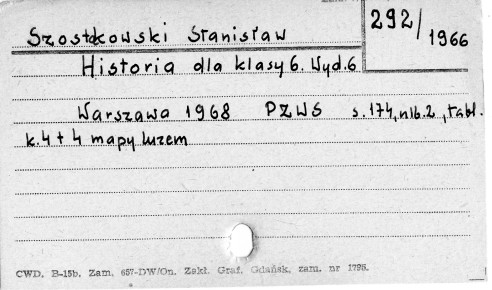 292/1966
Szostkowski Stanisław
Historia dla klasy 6. Wyd. 6
Warszawa 1968 PZWS s. 174, nlb. 2, tabl.
k. 4 + 4 mapy luzem
CWD, B-15b, Zam. 657-DW/On. Zakł. Graf. Gdańsk, zam. nr 1795.